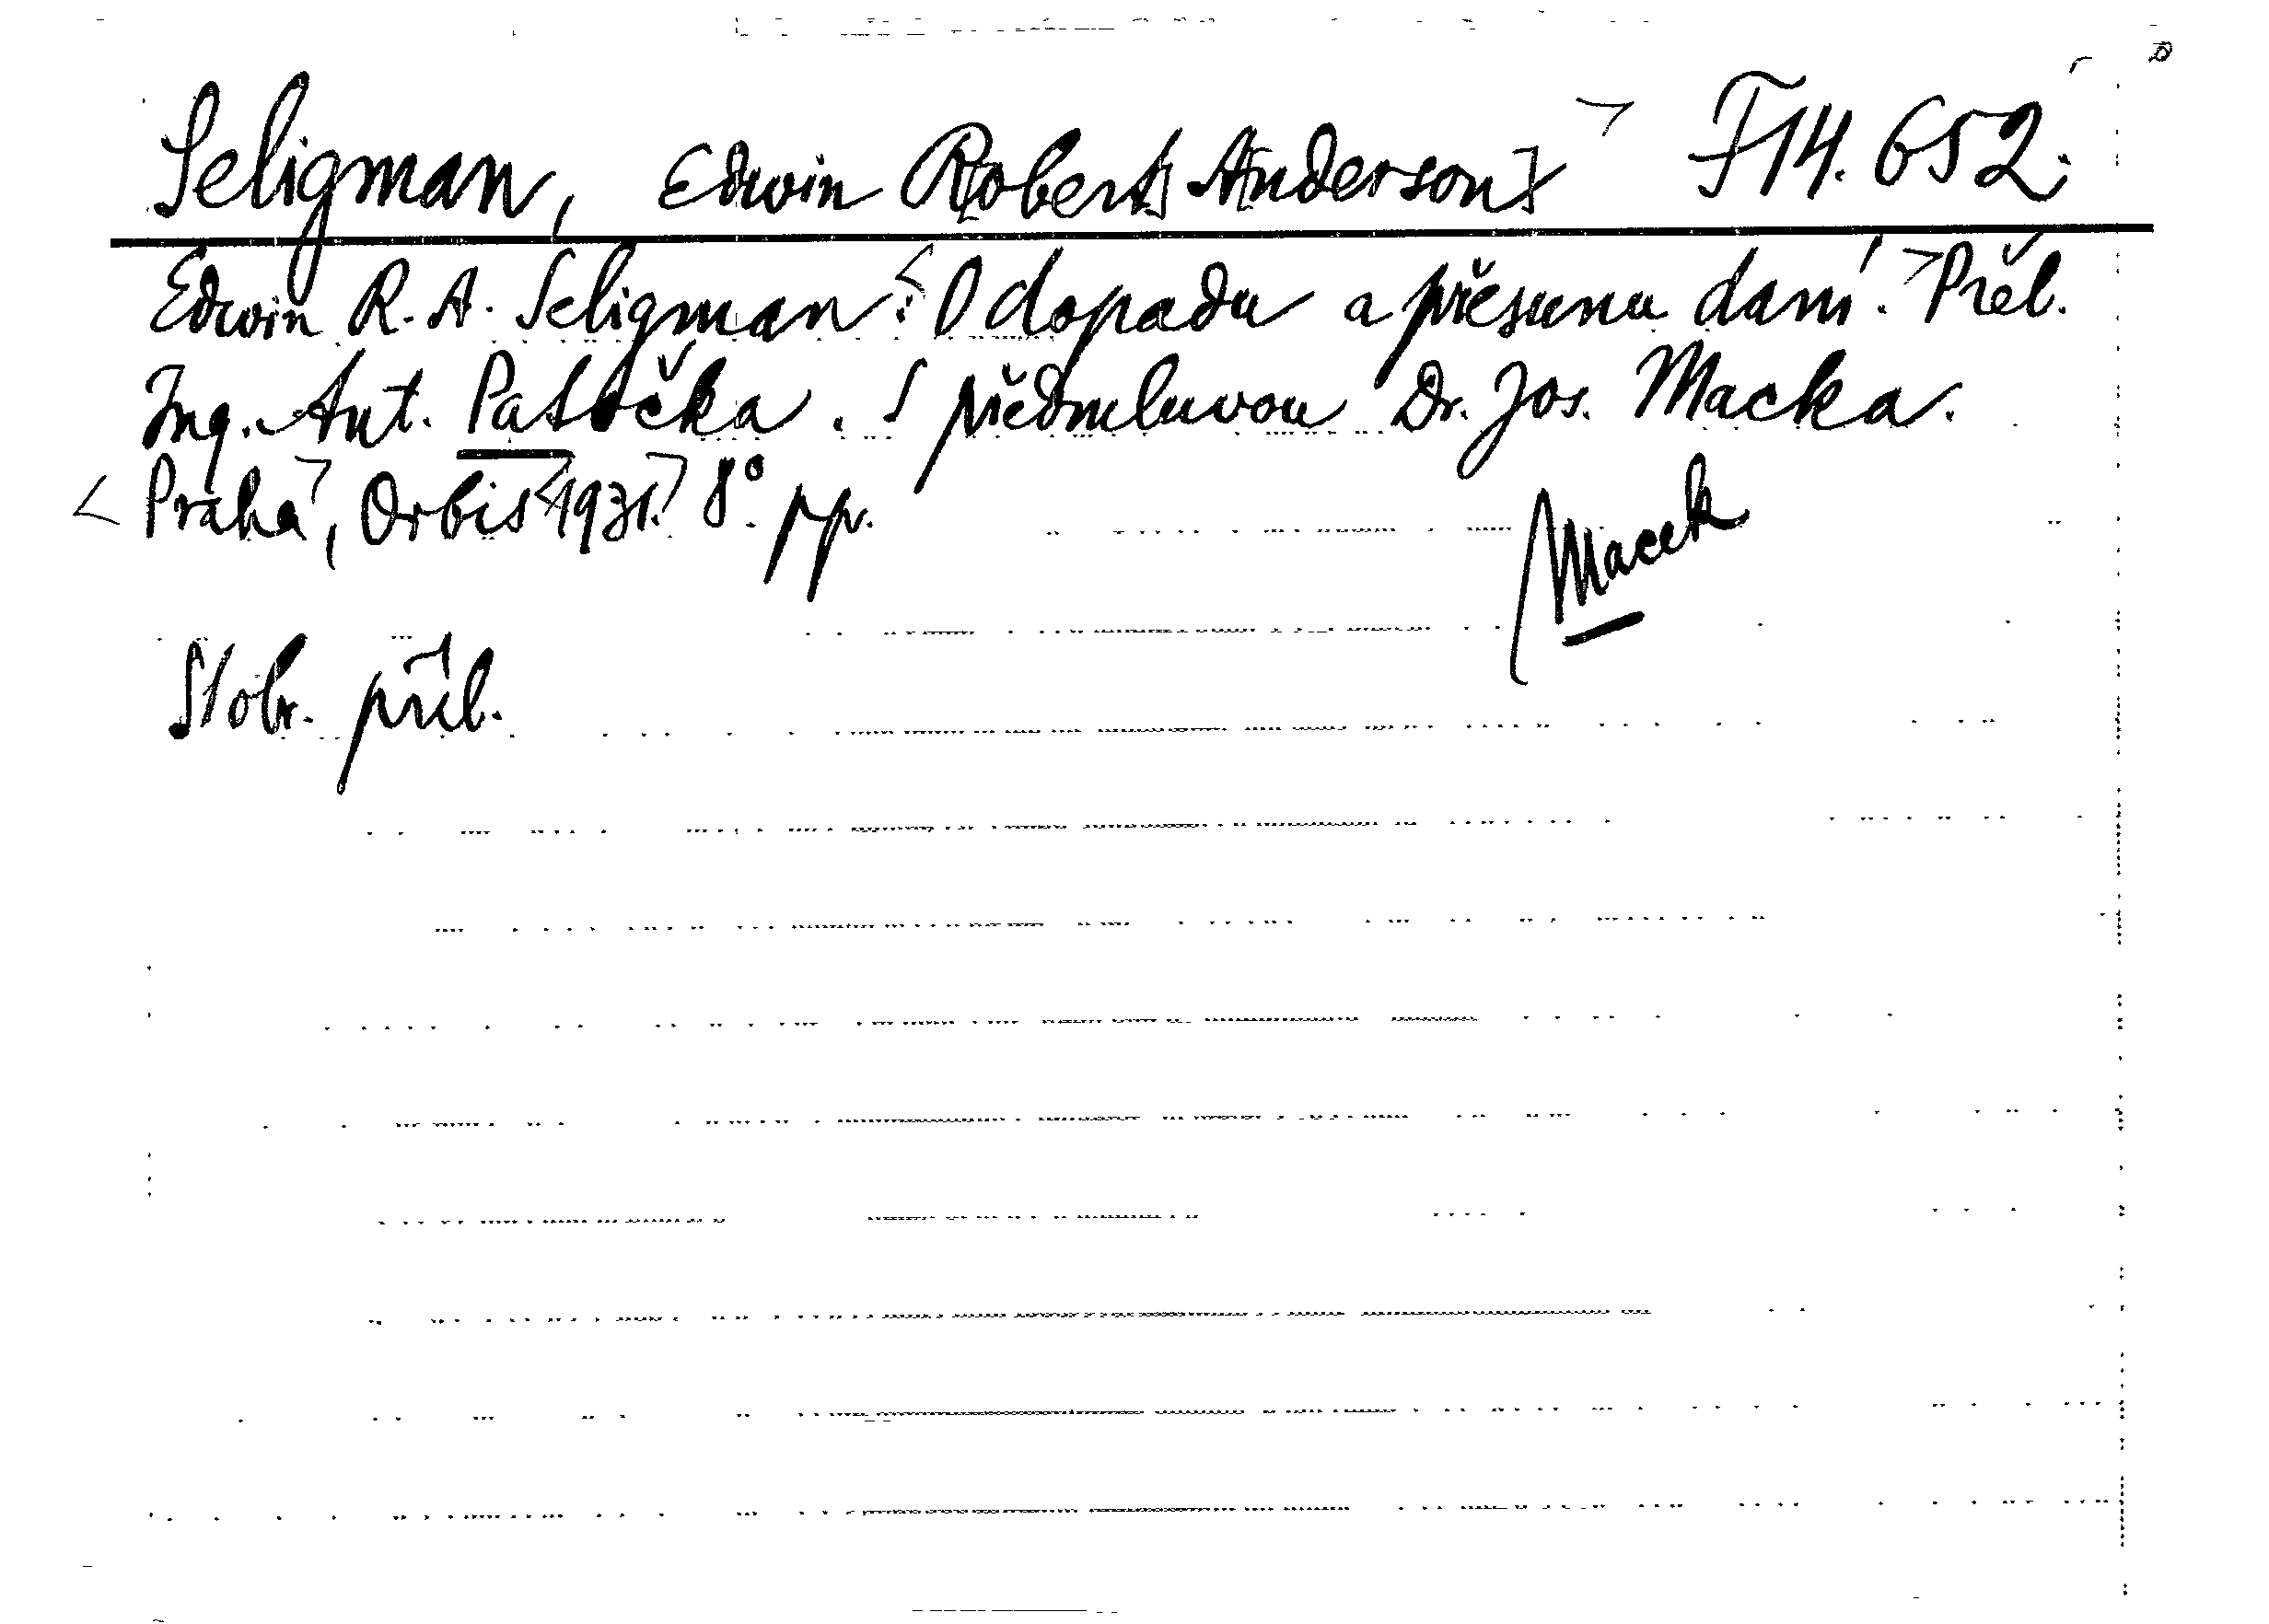 Seligman, Edwin R[obert] A[nderson] F14.652.
Edwin R. A. Seligman: O dopadu a přesunu daní. Přel.
Ing. Ant. Patočka. S předmluvou Dr. Jos. Macka.
Praha, Orbis 1931. 8°. pp.
Macek
Slobr. příl.